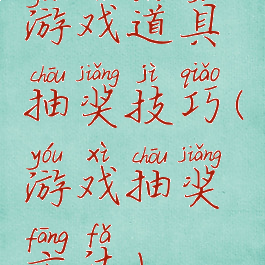 游戏道具
chōu jiǎng jì qiǎo
抽奖技巧(
yóu xì chōu jiǎng
游戏抽奖
fāng fǎ